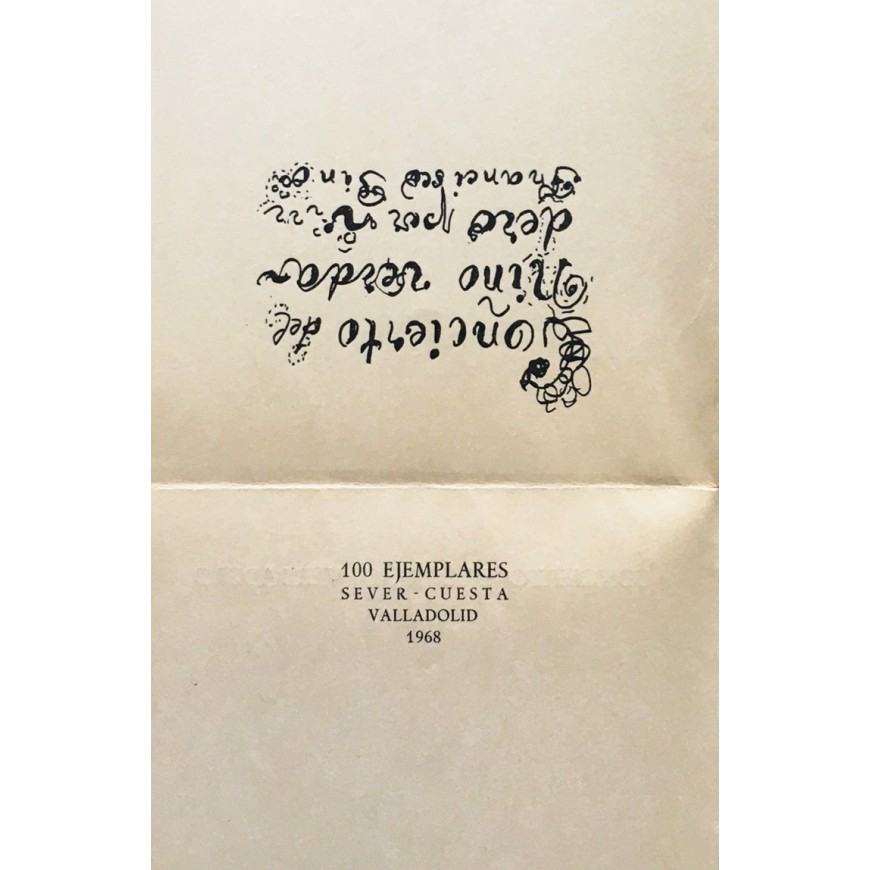 Concierto del
Niño verda-
dero por
Francisco Pino
100 EJEMPLARES
SEVER-CUESTA
VALLADOLID
1968